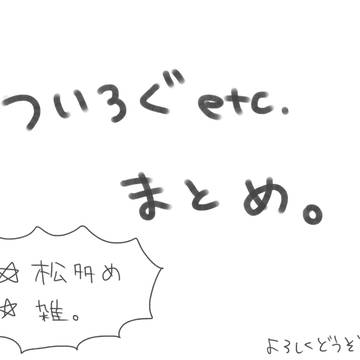 ついろぐetc.
まとめ。
☆ 松多め
☆ 雑。
よろしくどうぞ